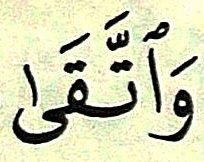 وَٱتَّقَىٰ